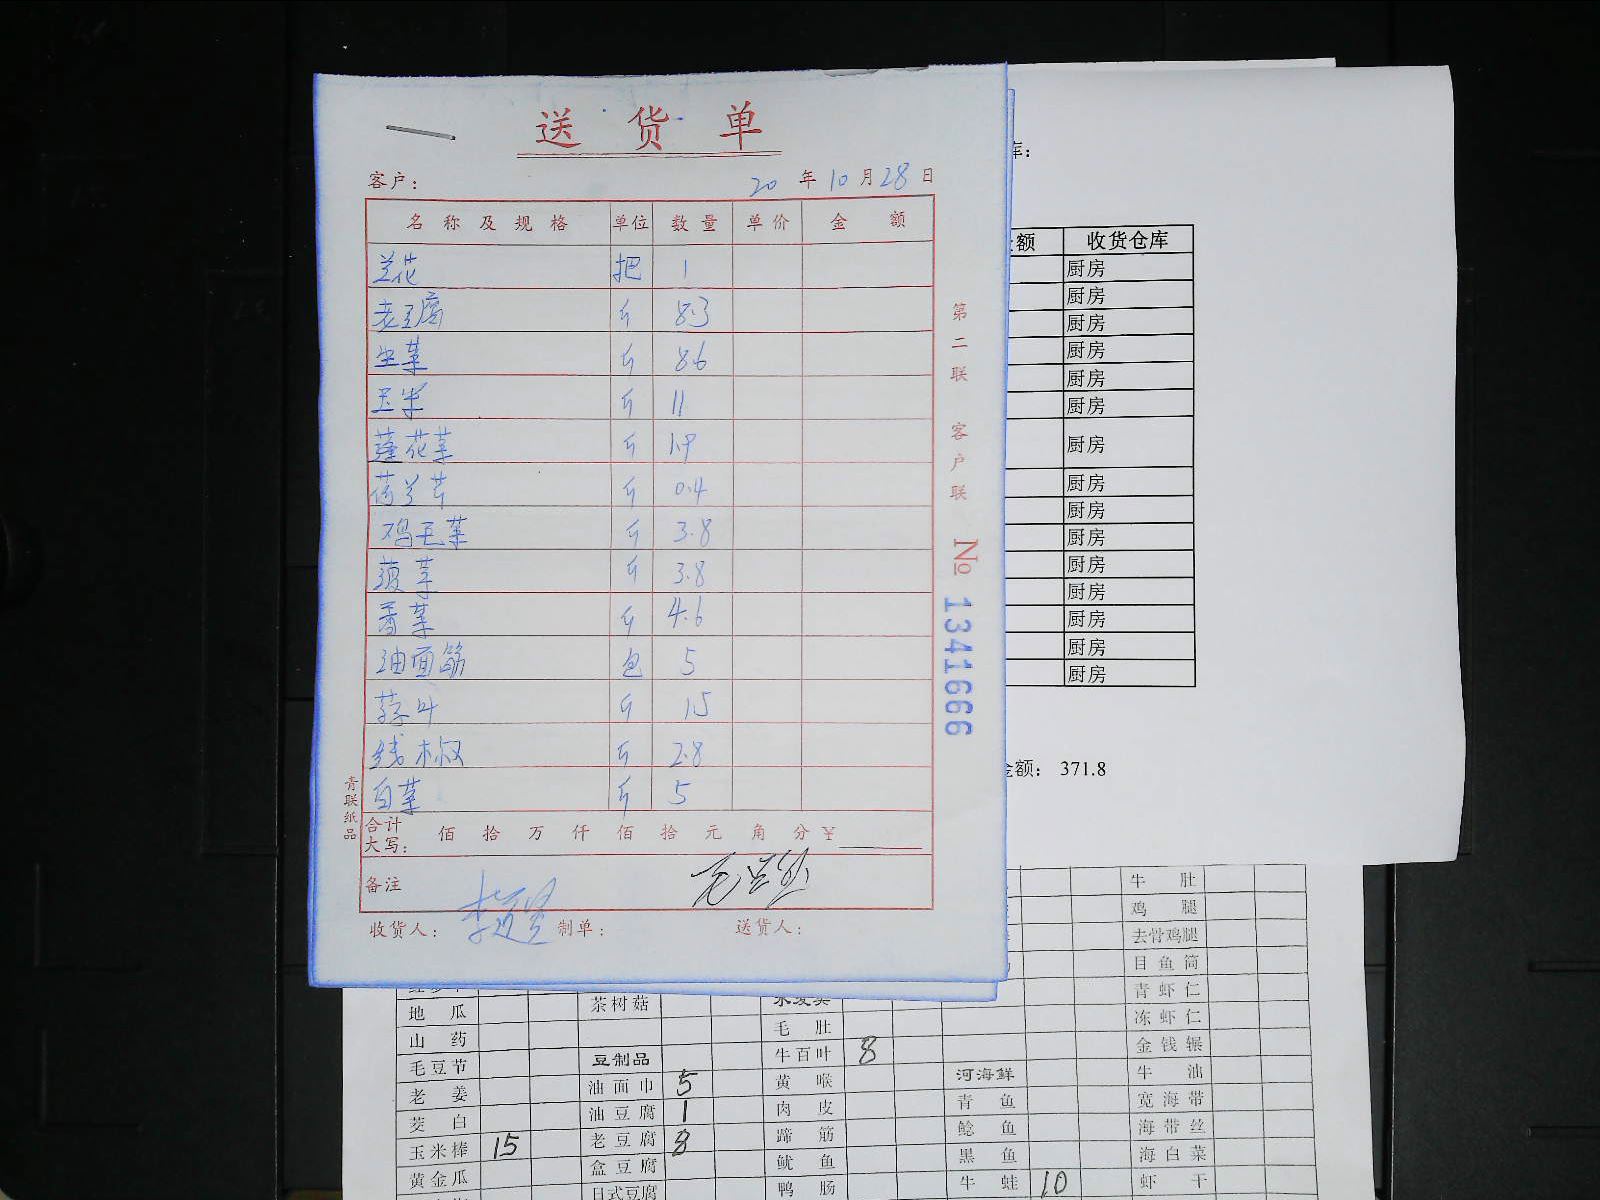 送货单
客户： 20 年 10 月 28 日
名称及规格 单位 数量 单价 金额
兰花 把 1
老豆腐 斤 8.3
生菜 斤 8.6
玉米 斤 11
蓬花菜 斤 1.9
荷兰芹 斤 0.4
鸡毛菜 斤 3.8
菠菜 斤 3.8
香菜 斤 4.6
油面筋 包 5
斤 15
线椒 斤 2.8
白菜 斤 5
合计大写： 佰 拾 万 仟 佰 拾 元 角 分 ¥
备注
收货人： 制单： 送货人：
青联纸品
第二联 客户联 № 1341666
库：
金额 收货仓库
厨房
厨房
厨房
厨房
厨房
厨房
厨房
厨房
厨房
厨房
厨房
厨房
厨房
厨房
厨房
金额： 371.8
牛肚
鸡腿
去骨鸡腿
目鱼筒
青虾仁
茶树菇
地瓜 冻虾仁
山药 毛肚 金钱辗
毛豆节 豆制品 牛百叶 8 河海鲜 牛油
老姜 油面巾 5 黄喉 青鱼 宽海带
茭白 油豆腐 1 肉皮 鲶鱼 海带丝
玉米棒 15 老豆腐 8 蹄筋 黑鱼 海白菜
黄金瓜 盒豆腐 鱿鱼 牛蛙 10 虾干
日式豆腐 鸭肠